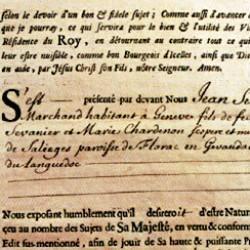 selon le devoir d'un bon & fidele sujet ; Comme aussi d'avancer
que je pourray, ce qui servira pour le bien & l'utilité des Vil
Résidence du ROY, en détournant au contraire tout ce qui
leur estre nuisible, comme bon Bourgeois d'Icelles, ainsi que Di
en aide, par Jésus Christ son Fils, nôtre Seigneur. Amen.
S'est présenté par devant Nous Jean S
Marchand habitant à Geneve fils de fe
Sevanier et Marie Chardenon
de Saliéges paroisse de Florac en Givaudan
du languedoc
Nous exposant humblement qu'il desireroit d'estre Natur
çeu au nombre des Sujets de Sa Majesté, en vertu & conform
Edit sus-mentionné, afin de jouir de Sa haute & puissante P